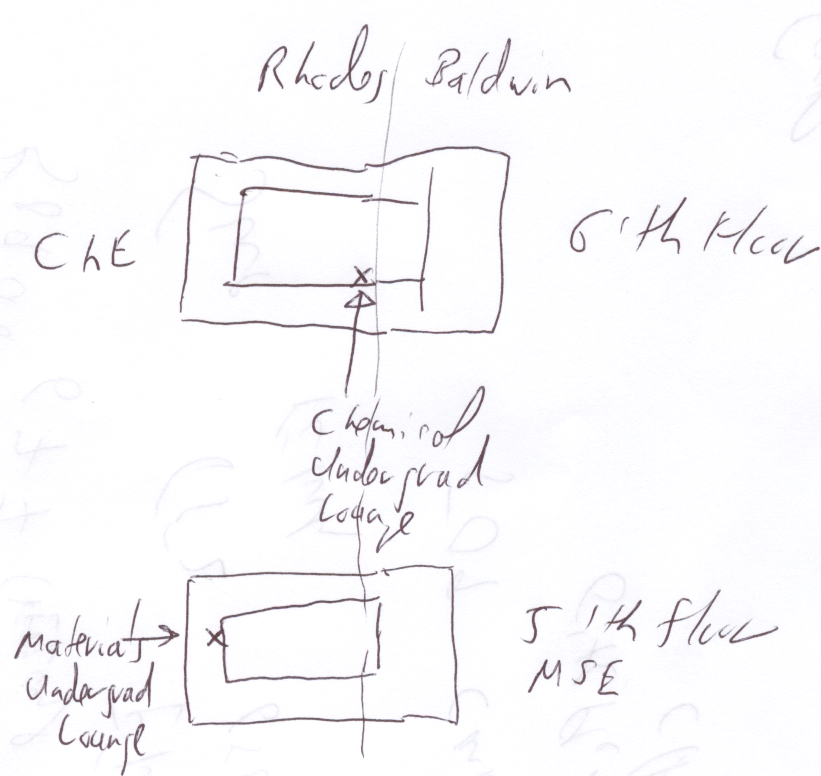 Rhodes Baldwin
ChE
6'th Floor
x
Chemical
Undergrad
Lounge
Materials
Undergrad
Lounge
x
5'th floor
MSE